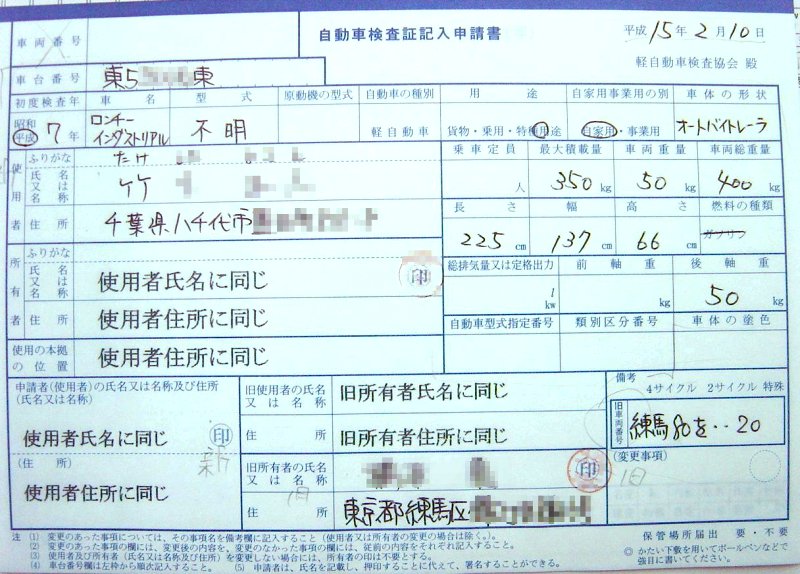 自動車検査証記入申請書
平成 15年 2月 10日
軽自動車検査協会 殿
車両番号
車台番号 東5 東
初度検査年 車名 型式 原動機の型式 自動車の種別 用途 自家用事業用の別 車体の形状
昭和 平成 7年 ロンチーインダストリアル 不明 軽自動車 貨物・乗用・特種用途 自家用・事業用 オートバイトレーラ
使用者
ふりがな たけ
氏名又は名称 竹
住所 千葉県八千代市
乗車定員 最大積載量 車両重量 車両総重量
人 350kg 50kg 400kg
長さ 幅 高さ 燃料の種類
225cm 137cm 66cm ガソリン
所有者
ふりがな
氏名又は名称 使用者氏名に同じ 印
住所 使用者住所に同じ
総排気量又は定格出力 前軸重 後軸重
l kw kg 50kg
自動車型式指定番号 類別区分番号 車体の塗色
使用の本拠の位置 使用者住所に同じ
申請者(使用者)の氏名又は名称及び住所
(氏名又は名称)
使用者氏名に同じ 印
新
(住所)
使用者住所に同じ
旧使用者の氏名又は名称 旧所有者氏名に同じ
住所 旧所有者住所に同じ
旧所有者の氏名又は名称 印
旧
住所 東京都練馬区
備考
4サイクル 2サイクル 特殊
旧車両番号 練馬80を・・20
(変更事項)
旧
注 (1) 変更のあった事項については、その事項名を備考欄に記入すること(使用者又は所有者の変更の場合は除く。)。
(2) 変更のあった事項の欄には、変更後の内容を、変更のなかった事項の欄には、従前の内容をそれぞれ記入すること。
(3) 使用者及び所有者(氏名又は名称及び住所)を変更しない場合には、所有者の印は不要とする。
(4) 車台番号欄は左枠から順次記入すること。 (5) 申請者は、氏名を記載し、押印することに代えて、署名することができる。
保管場所届出 要・不要
◎ かたい下敷を用いてボールペンなどで強目に書いてください。